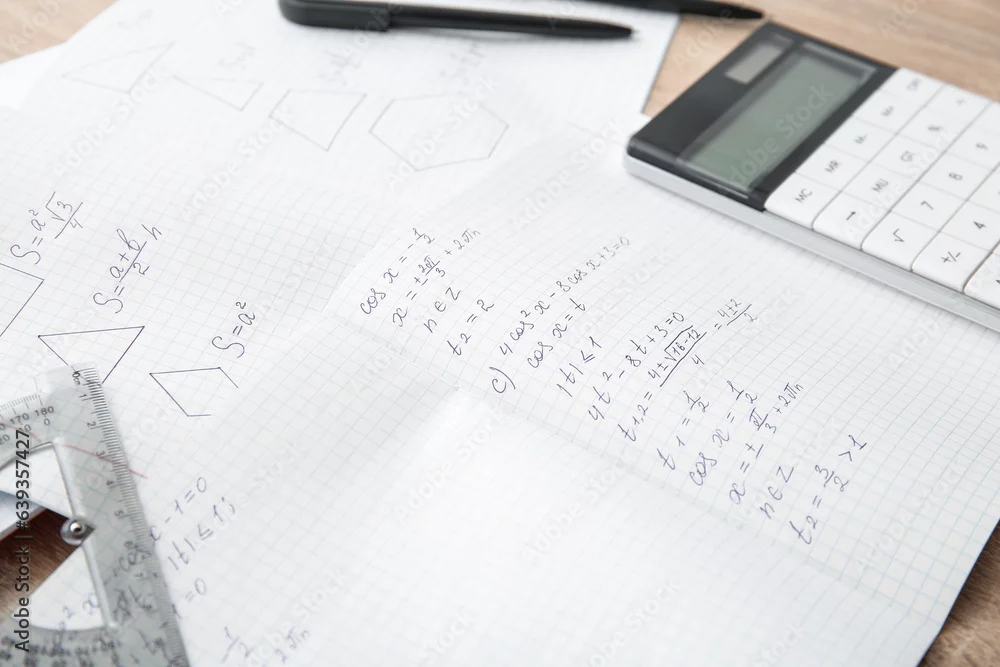 S=a²√3/4
S=a+b/2 h
S=a²
cos x = -1/2
x = ±2π/3 + 2πn
n ∈ Z
t2 = 2
c) 4cos²x - 8cos x + 3 = 0
cos x = t
|t| ≤ 1
4t² - 8t + 3 = 0
t1,2 = 4±√16-12/4 = 4±2/2
t1 = 1/2
cos x = 1/2
x = ±π/3 + 2πn
n ∈ Z
t2 = 3/2 > 1
x - 1 = 0
|t| ≤ 1;
= 0
1/2
2πn
MC MR M- M+
→ MU GT
√ 7 8 9
+/- 4
170 180
Adobe Stock | #639357427